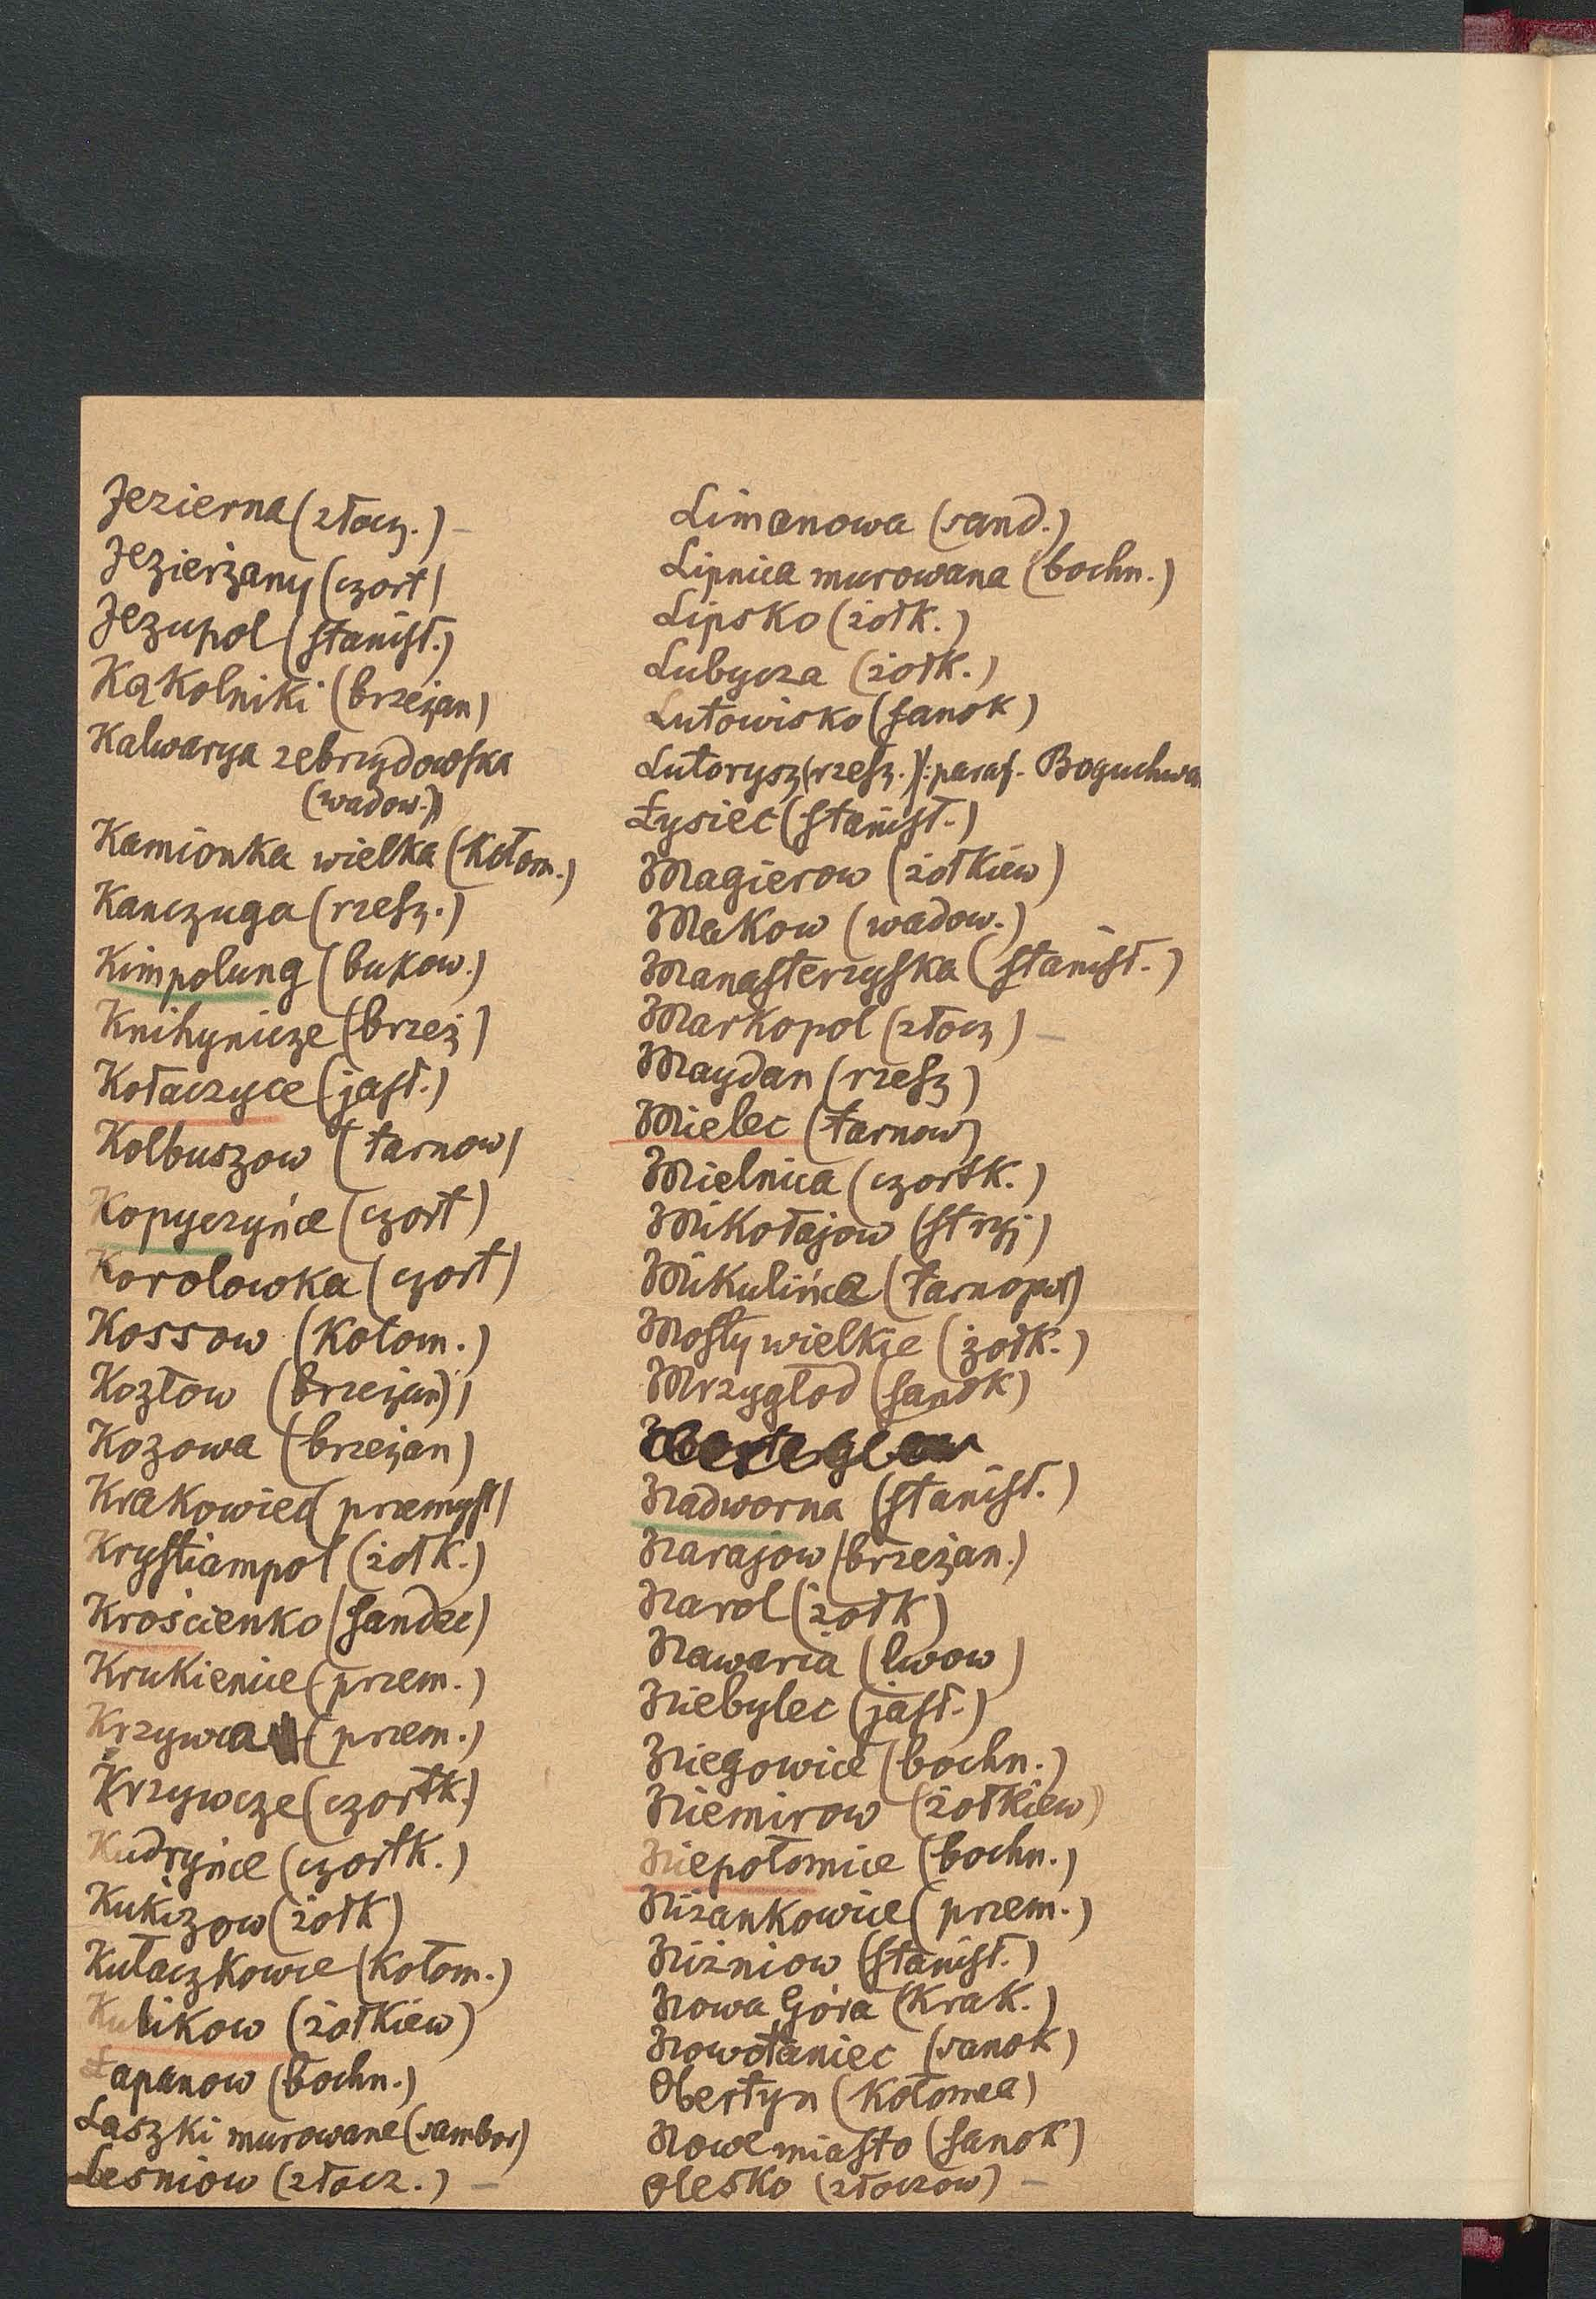 Jezierna (złocz.) –
Jezierzany (czort)
Jezupol (stanisł.)
Kąkolniki (brzeżan)
Kalwarya zebrzydowska
(wadow.)
Kamionka wielka (kołom.)
Kanczuga (rzesz.)
Kimpolung (bukow.)
Knihynicze (brzeż)
Kołaczyce (jasł.)
Kolbuszow (tarnow)
Kopyczyńce (czort)
Korolowka (czort)
Kossow (kołom.)
Kozłow (brzeżan)
Kozowa (brzeżan)
Krakowiec (przemyśl)
Krystiampol (żołk.)
Krościenko (sandec)
Krukienice (przem.)
Krzywcza (przem.)
Krzywcze (czortk.)
Kudryńce (czortk.)
Kukizow (żołk)
Kułaczkowce (kołom.)
Kulikow (żołkiew)
Łapanow (bochn.)
Laszki murowane (sambor)
Lesniow (złocz.) –
Limanowa (sand.)
Lipnica murowana (bochn.)
Lipsko (żołk.)
Lubycza (żołk.)
Lutowisko (sanok)
Lutorysz (rzesz.): paraf. Boguchwa
Łysiec (stanisł.)
Magierow (żołkiew)
Makow (wadow.)
Manasterzyska (stanisł.)
Markopol (złocz) –
Maydan (rzesz)
Mielec (tarnow)
Mielnica (czortk.)
Mikołajow (stryj)
Mikulińce (tarnopol)
Mosty wielkie (żołk.)
Mrzygłod (sanok)
Nadworna (stanisł.)
Narajow (brzeżan.)
Narol (żołk)
Nawaria (lwow)
Niebylec (jasł.)
Niegowice (bochn.)
Niemirow (żołkiew)
Niepołomice (bochn.)
Niżankowice (przem.)
Niżniow (stanisł.)
Nowa Góra (Krak.)
Nowotaniec (sanok)
Obertyn (kołomea)
Nowe miasto (sanok)
Olesko (złoczow) –